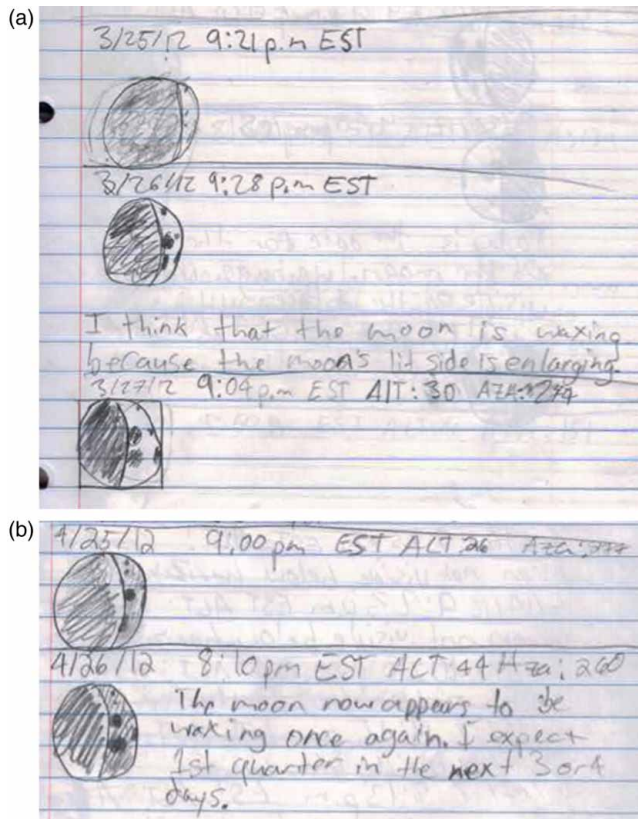 (a)
3/25/12 9:21p.m EST
3/26/12 9:28 p.m EST
I think that the moon is waxing
because the moon's lit side is enlarging.
3/27/12 9:04p.m EST Alt:30 AZA:274
(b)
4/25/12 9:00pm EST ALT:26 Aza:277
4/26/12 8:10pm EST ALT:44 Aza:260
The moon now appears to be
waxing once again. I expect
1st quarter in the next 3 or 4
days.